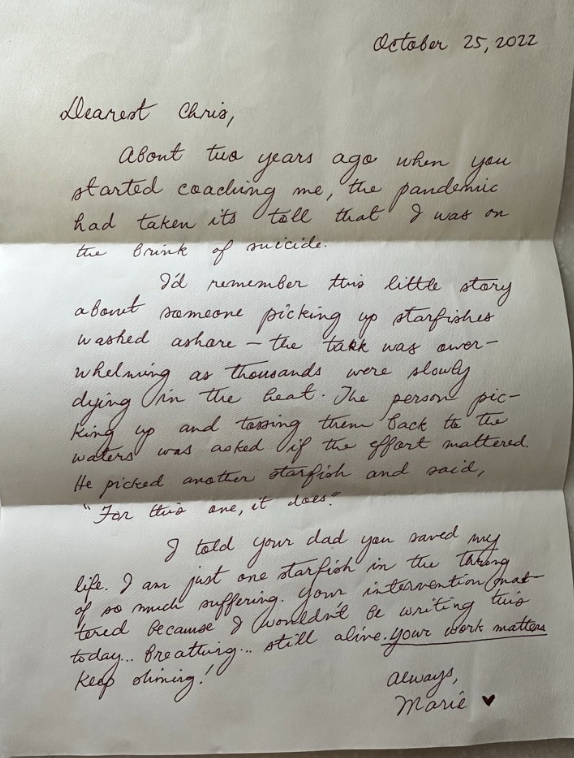 October 25, 2022
Dearest Chris,
About two years ago when you
started coaching me, the pandemic
had taken its toll that I was on
the brink of suicide.
I'd remember this little story
about someone picking up starfishes
washed ashore — the task was over-
whelming as thousands were slowly
dying in the heat. The person pic-
king up and tossing them back to the
waters was asked if the effort mattered.
He picked another starfish and said,
"For this one, it does."
I told your dad you saved my
life. I am just one starfish in the throng
of so much suffering. Your intervention mat-
tered because I wouldn't be writing this
today... breathing... still alive. Your work matters
Keep shining!
Always,
Marie ♥